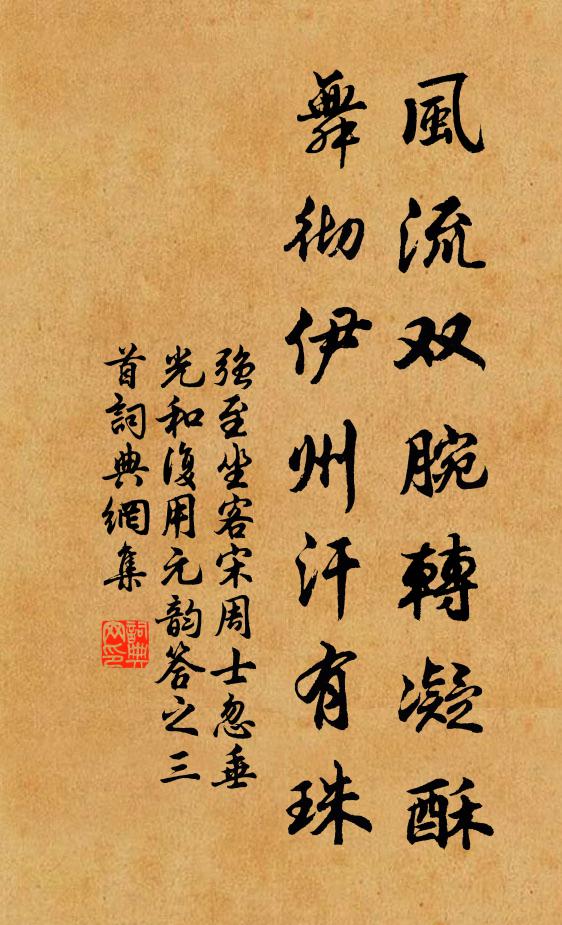 風流双腕轉凝酥
舞彻伊州汗有珠
强至坐客宋周士忽垂
光和復用元韵答之三
首詞典網集
詞典网印